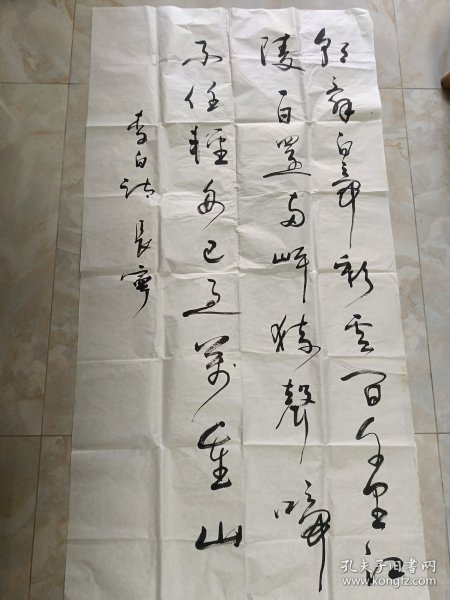 朝辭白帝彩云间千里江
陵一日還两岸猿聲啼
不住輕舟已过萬重山
李白诗 長寧
孔夫子旧书网
www.kongfz.com